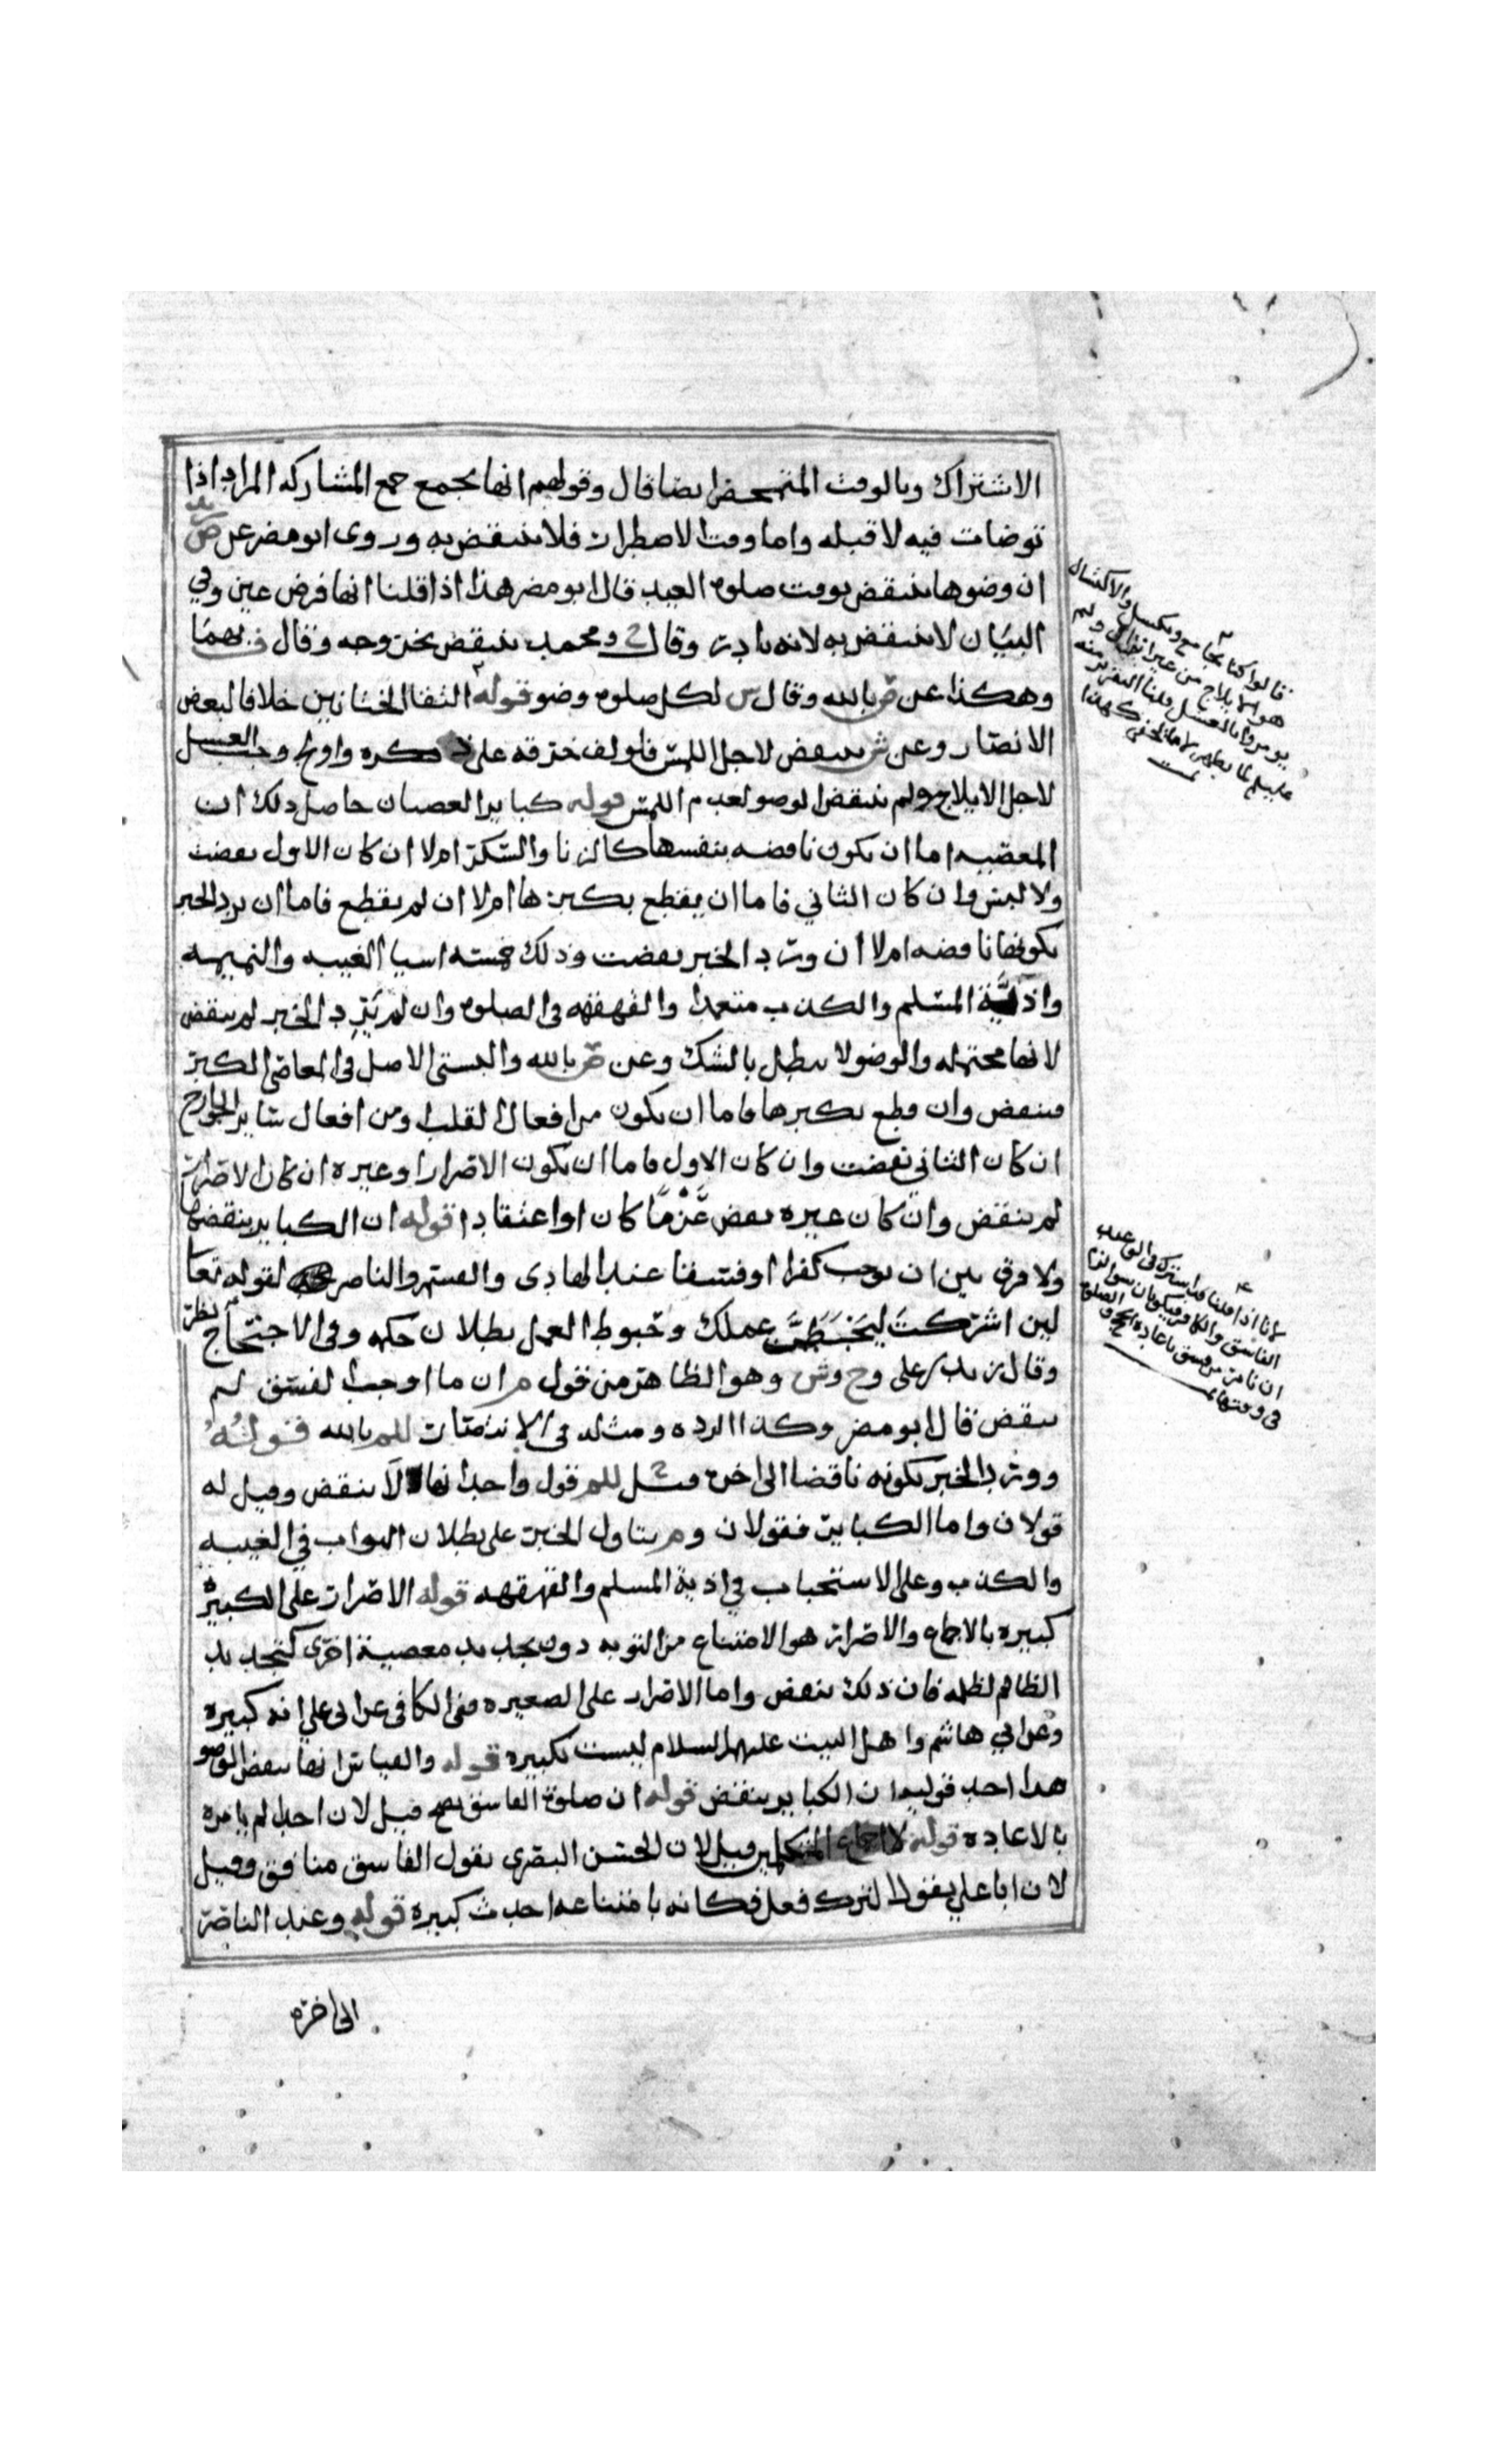 الاشتراك وبالوقت المتمحض ايضا قال وقولهم انها تجمع جمع المشاركه المراد اذا
توضات فيه لا قبله واما وقت الاضطرار فلا ينتقض به وروى ابو مضر عن ض زيد
ان وضوها ينتقض بوقت صلوة العيد قال ابو مضر هذا اذا قلنا انها فرض عين وفي
البيان لا ينتقض به لانه نادر وقال ومحمد ينتقض بخروجه وقال فيهما
وهكذا عن م بالله وقال س لكل صلوة وضو قوله التقا الختانين خلافا لبعض
الانصار وعن ش ينتقض لاجل اللمس فلو لف خرقه على ذكره واولج وجب الغسل
لاجل الايلاج ولم ينتقض الوضو لعدم اللمس قوله كباير العصيان حاصل ذلك ان
المعصيه اما ان يكون ناقضه بنفسها كالزنا والسكر ام لا ان كان الاول نقضت
ولا لبس وان كان الثاني فاما ان يقطع بكبرها ام لا ان لم يقطع فاما ان يرد الخبر
بكونها ناقضه ام لا ان ورد الخبر نقضت وذلك خمسه اشيا الغيبه والنميمه
واذية المسلم والكذب متعمدا والقهقهه في الصلوة وان لم يرد الخبر لم ينتقض
لانها محتمله والوضو لا يبطل بالشك وعن م بالله والبستي الاصل في المعاصي الكبر
فتنقض وان قطع بكبرها فاما ان يكون من افعال القلب او من افعال ساير الجوارح
ان كان الثاني نقضت وان كان الاول فاما ان يكون الاصرار او غيره ان كان الاصرار
لم ينتقض وان كان غيره نقض عزما كان او اعتقادا قوله ان الكباير ينقضها
ولا فرق بين ان توجب كفرا او فسقا عند الهادي والقسم والناصر لقوله تعا
لين اشركت ليحبطن عملك وحبوط العمل بطلان حكمه وفي الاحتجاج نظر
وقال زيد بن على وح وش وهو الظاهر من قول م ان ما اوجب الفسق لم
ينقض قال ابو مضر وكذا الرده ومثله في الافادات للم بالله قوله
وورد الخبر بكونه ناقضا الى اخره مثل للم قول واحد انها لا ينقض وقيل له
قولان واما الكباير فقولان وم يتاول الخبر على بطلان الثواب في الغيبه
والكذب وعلى الاستحباب في اذية المسلم والقهقهه قوله الاصرار على الكبيره
كبيره بالاجماع والاصرار هو الامتناع من التوبه دون تجديد معصية اخرى كتجديد
الظالم لظلمه فان ذلك ينقض واما الاصرار على الصغيره ففي الكافي عن ابي علي انه كبيره
وعن ابي هاشم واهل البيت عليهم السلام ليست بكبيره قوله والقياس انها تنقض الوضو
هذا احد قوليه ان الكباير ينقض قوله ان صلوة الفاسق تصح قيل لان احدا لم يامره
بالاعاده قوله لا اجماع المتكلمين قيل لان الحسن البصري يقول الفاسق منافق وقيل
لان ابا علي يقول الترك فعل فكانه بامتناعه احدث كبيره قوله وعند الناصر
الى اخره
قالوا كنا نجامع ونكسل والاكسال
هو الايلاج من غير انزال ولم
يومروا بالغسل قلنا التقرير منه
لانا اذا قلنا قد اشترك في الوعيد
الفاسق والكافر
ان نامر من فسق باعادة الحج والصلوة
في وقتها